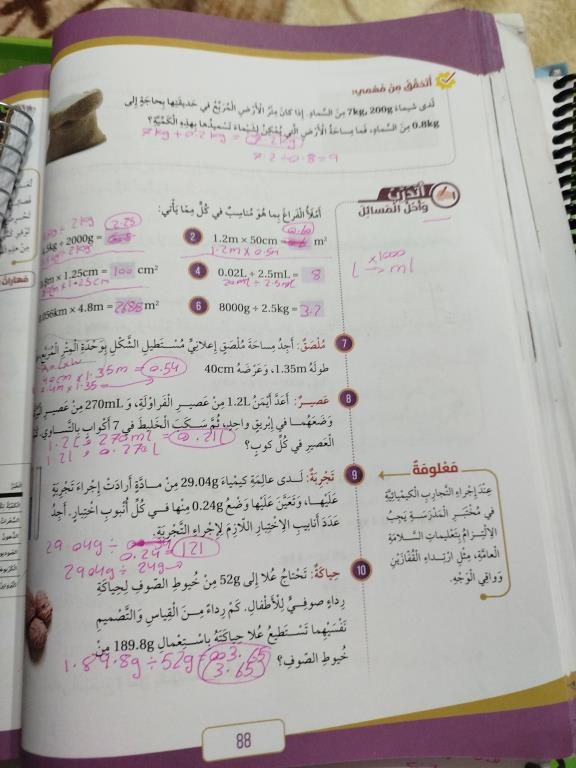 أتحقق من فهمي:
لدى شيماء 7kg, 200g من السماد. إذا كان متر الأرض المربع في حديقتها بحاجة إلى
0.8kg من السماد، فما مساحة الأرض التي يمكن لشيماء تسميدها بهذه الكمية؟
7kg + 0.2kg =
7.2 ÷ 0.8 = 9
أتدرب
وأحل المسائل
أملأ الفراغ بما هو مناسب في كل مما يأتي:
kg ÷ 2000g =
2 1.2m × 50cm = m²
1.2m × 0.5m
× 1.25cm = 100 cm²
4 0.02L ÷ 2.5mL = 8
20ml ÷ 2.5ml
×1000
L → ml
056km × 4.8m = 268.8 m²
6 8000g ÷ 2.5kg = 3.2
7 ملصق: أجد مساحة ملصق إعلاني مستطيل الشكل بوحدة المتر المربع
طوله 1.35m، وعرضه 40cm
40cm × 1.35m = 0.54
0.4m × 1.35
8 عصير: أعد أيمن 1.2L من عصير الفراولة، و 270mL من عصير
وضعهما في إبريق واحد، ثم سكب الخليط في 7 أكواب بالتساوي.
العصير في كل كوب؟
1.2L , 270ml = 0.21L
1.2L , 0.270L
9 تجربة: لدى عالمة كيمياء 29.04g من مادة أرادت إجراء تجربة
عليها، وتعين عليها وضع 0.24g منها في كل أنبوب اختبار. أجد
عدد أنابيب الاختبار اللازم لإجراء التجربة.
29.04g ÷
0.24 = 121
2904g ÷ 24g →
معلومة
عند إجراء التجارب الكيميائية
في مختبر المدرسة يجب
الالتزام بتعليمات السلامة
العامة، مثل ارتداء القفازين
وواقي الوجه.
10 حياكة: تحتاج علا إلى 52g من خيوط الصوف لحياكة
رداء صوفي للأطفال. كم رداء من القياس والتصميم
نفسيهما تستطيع علا حياكته باستعمال 189.8g من
خيوط الصوف؟
1.89.8g ÷ 52g = 3.65
3.65
88